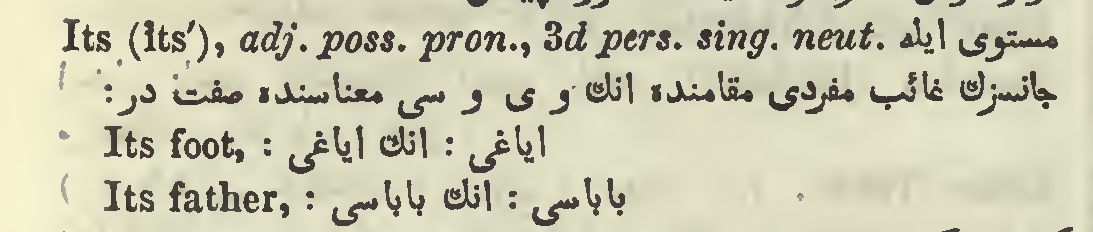 Its (ĭts′), adj. poss. pron., 3d pers. sing. neut. مستوی ایله
جانسزك غائب مفردی مقامنده انك و ی و سی معناسنده صفت در :
Its foot, : ایاغی : انك ایاغی
Its father, : باباسی : انك باباسی